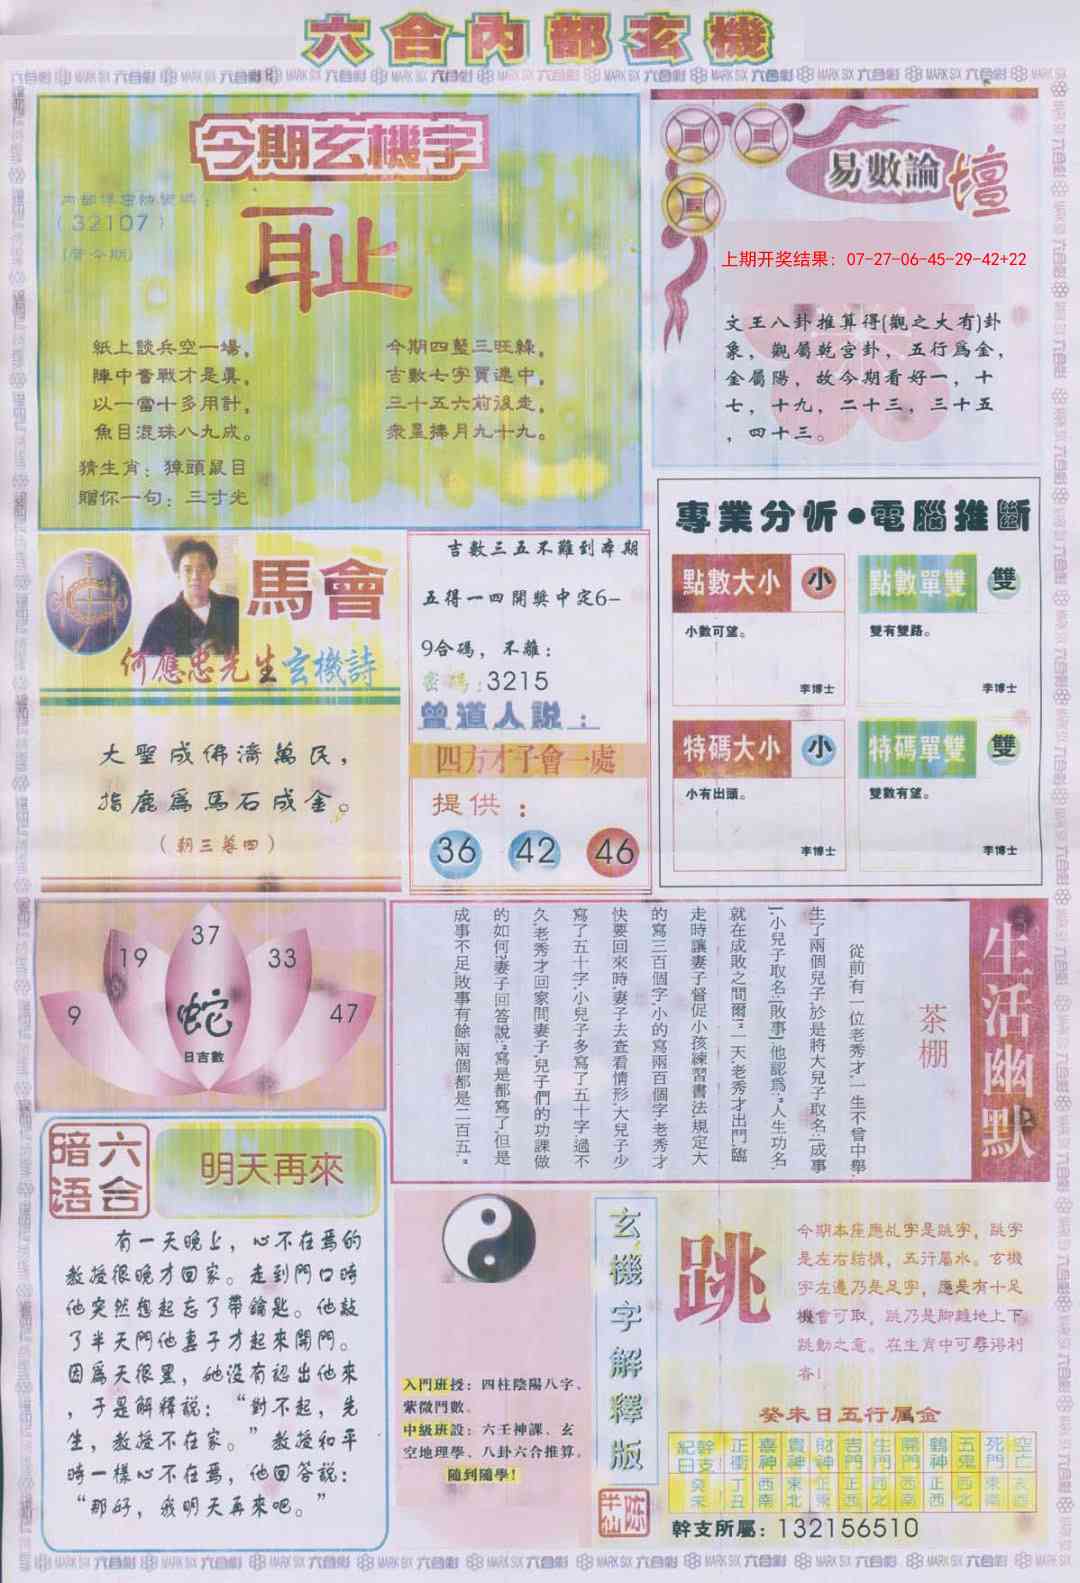 六合內部玄機
今期玄機字
（32107）
恥
紙上談兵空一場，
陣中奮戰才是真，
以一當十多用計，
魚目混珠八九成。
今期四藍三旺綠，
吉數七字買連中，
三十五六前後走，
眾星捧月九十九。
猜生肖：獐頭鼠目
贈你一句：三寸光
易數論壇
上期开奖结果：07-27-06-45-29-42+22
文王八卦推算得(觀之大有)卦
象，觀屬乾宮卦，五行為金，
金屬陽，故今期看好一，十
七，十九，二十三，三十五
，四十三。
專業分析●電腦推斷
點數大小 小
小數可望。
李博士
點數單雙 雙
雙有雙路。
李博士
特碼大小 小
小有出頭。
李博士
特碼單雙 雙
雙數有望。
李博士
馬會
何應忠先生玄機詩
大聖成佛濟萬民，
指鹿為馬石成金。
（朝三暮四）
吉數三五不難到本期
五得一四開獎中定6-
9合碼，不離：
密碼:3215
曾道人說：
四方才子會一處
提供：
36 42 46
9 19 37 33 47
蛇
日吉數
生活幽默
茶棚
從前,有一位老秀才,一生不曾中舉,
生了兩個兒子,於是將大兒子取名:[成事
],小兒子取名:[敗事],他認為:"人生功名
就在成敗之間爾!"一天,老秀才出門,臨
走時讓妻子督促小孩練習書法,規定大
的寫三百個字,小的寫兩百個字,老秀才
快要回來時,妻子去查看情形,大兒子少
寫了五十字,小兒子多寫了五十字;過不
久,老秀才回家問妻子,兒子們的功課做
的如何?妻子回答說:"寫是都寫了,但是
成事不足,敗事有餘,兩個都是二百五."
六合暗语
明天再來
有一天晚上，心不在焉的
教授很晚才回家。走到門口時
他突然想起忘了帶鑰匙。他敲
了半天門他妻子才起來開門。
因為天很黑，她沒有認出他來
，于是解釋說：“對不起，先
生，教授不在家。”教授和平
時一樣心不在焉，他回答說：
“那好，我明天再來吧。”
入門班授：四柱陰陽八字、
紫微鬥數。
中級班設：六壬神課、玄
空地理學、八卦六合推算。
隨到隨學！
玄機字解釋版
陈半仙
跳
今期本座應乩字是跳字，跳字
是左右結構，五行屬水。玄機
字左邊乃是足字，應是有十足
機會可取，跳乃是腳離地上下
跳動之意。在生肖中可尋得利
者！
癸未日五行属金
紀日 幹支 正衝 喜神 貴神 財神 吉門 生門 開門 鶴神 五鬼 死門 空亡
癸未 丁丑 西南 東北 正東 正西 西北 西北 正西 西北 東南
幹支所屬：132156510
MARK SIX 六合彩